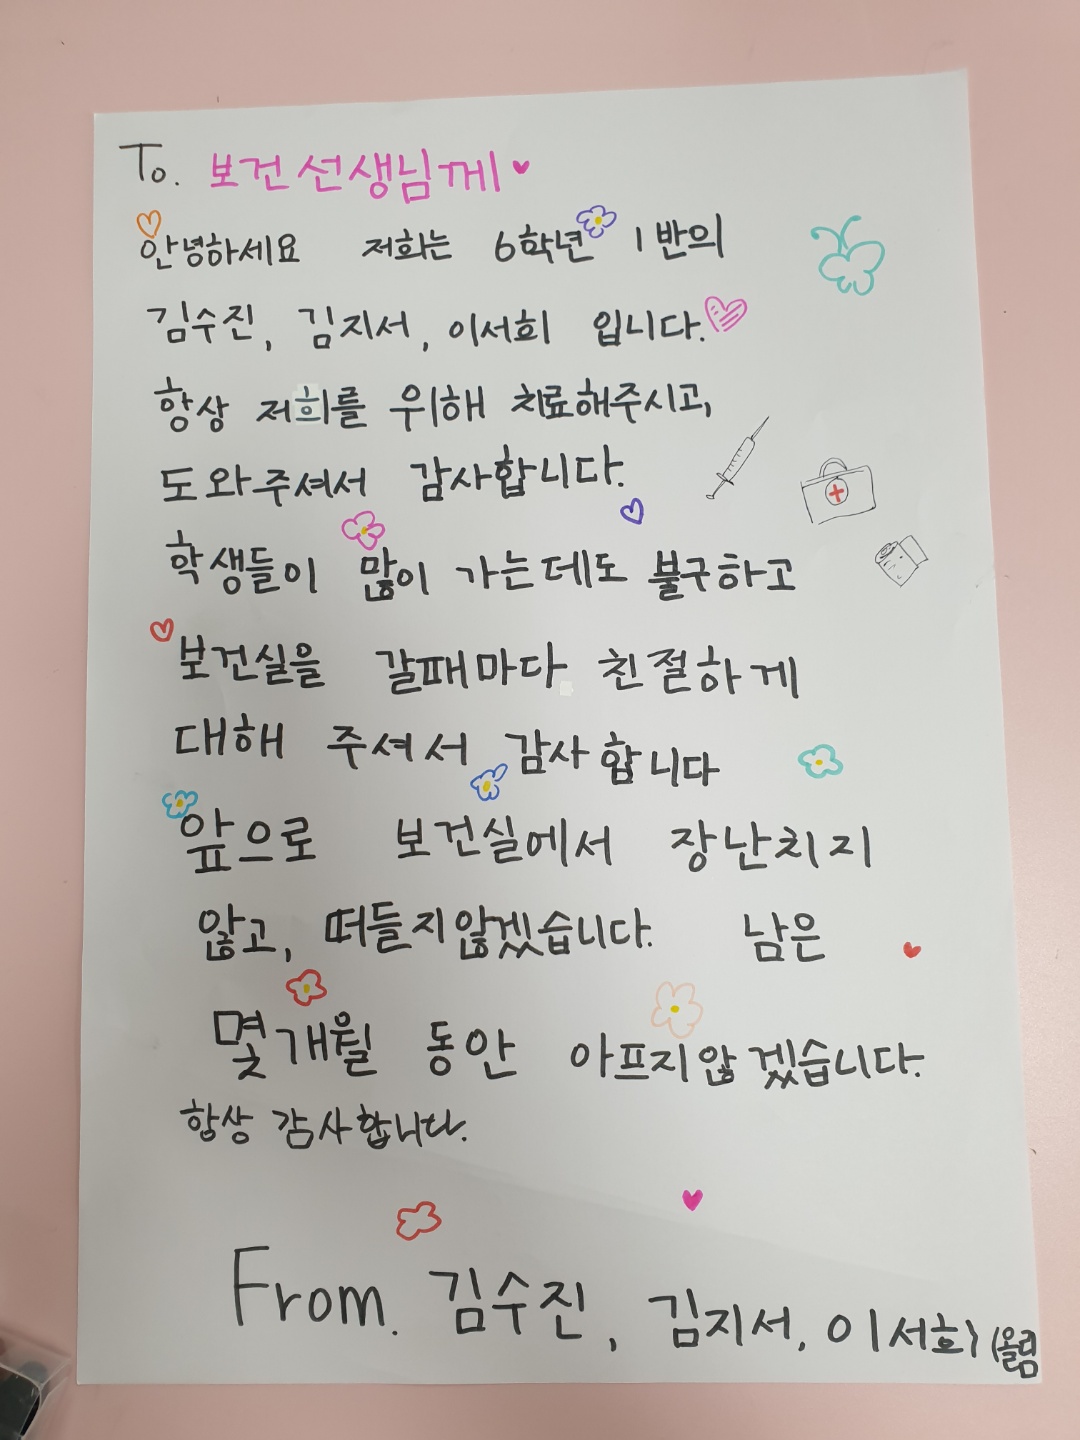 To. 보건선생님께
안녕하세요 저희는 6학년 1반의
김수진, 김지서, 이서희 입니다.
항상 저희를 위해 치료해주시고,
도와주셔서 감사합니다.
학생들이 많이 가는데도 불구하고
보건실을 갈때마다 친절하게
대해 주셔서 감사합니다
앞으로 보건실에서 장난치지
않고, 떠들지않겠습니다. 남은
몇개월 동안 아프지않겠습니다.
항상 감사합니다.
From. 김수진, 김지서, 이서희 (올림